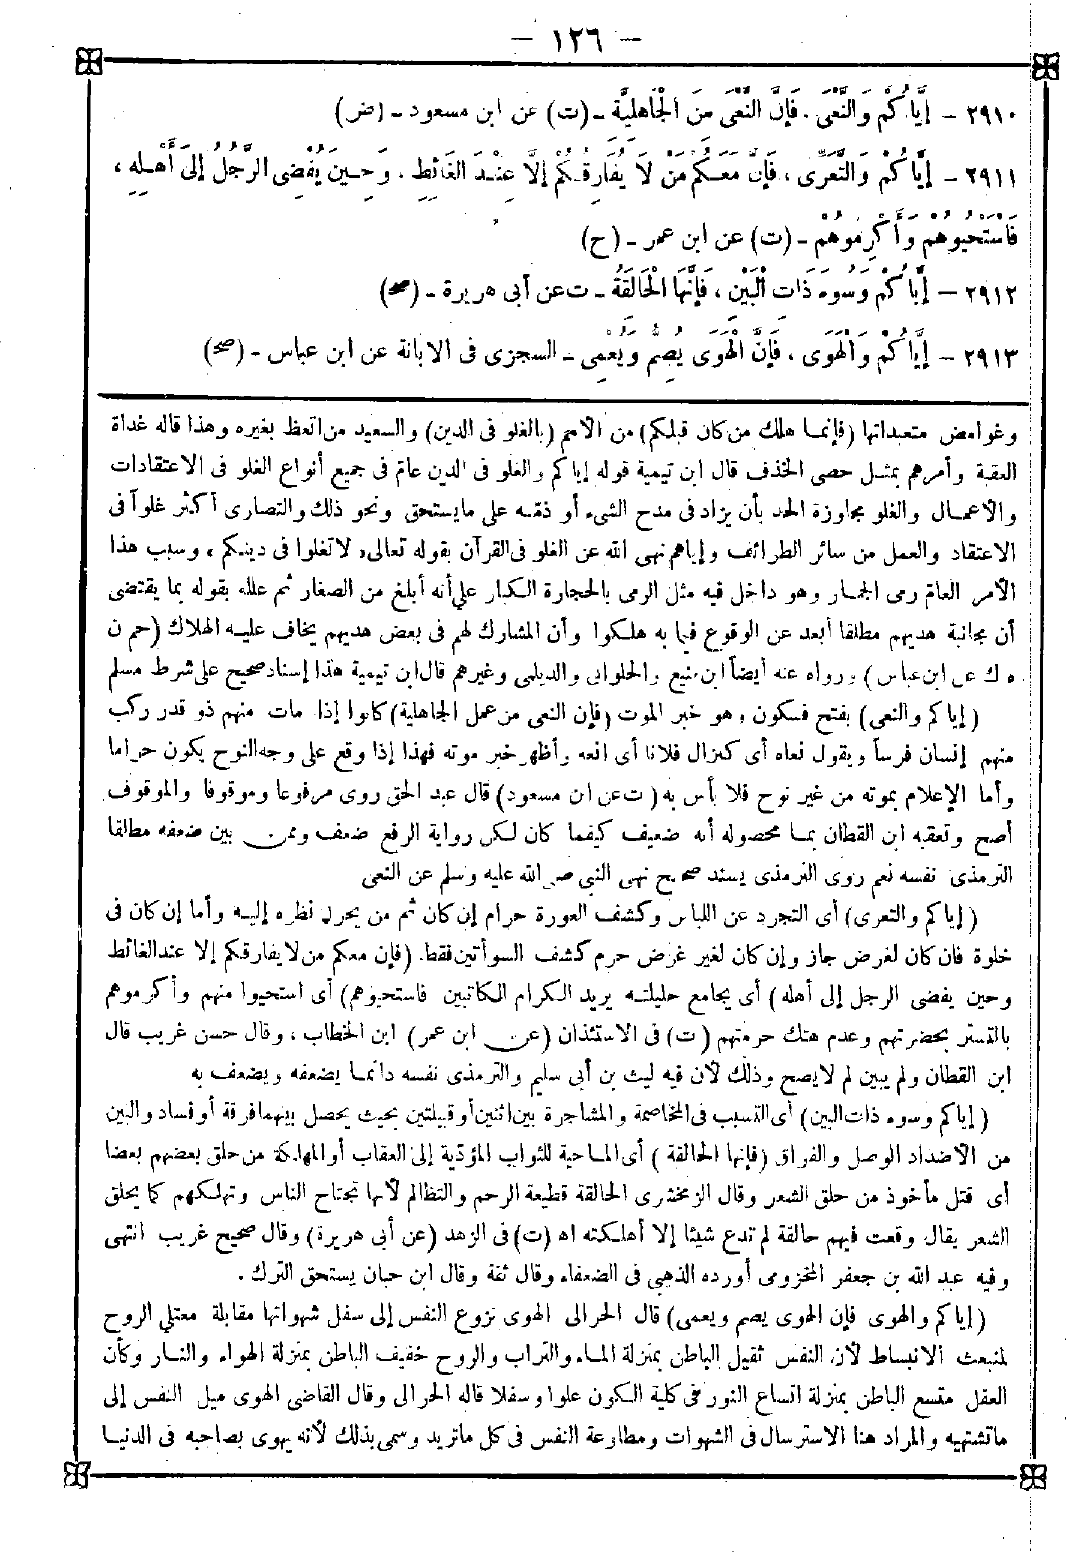 — ١٢٦ —
٢٩١٠ – إِيَّاكُمْ وَالنَّعْىَ . فَإِنَّ النَّعْىَ مِنَ الْجَاهِلِيَّةِ – (ت) عن ابن مسعود – (ض)
٢٩١١ – إِيَّاكُمْ وَالتَّعَرِّى ، فَإِنَّ مَعَكُمْ مَنْ لَا يُفَارِقُكُمْ إِلَّا عِنْدَ الْغَائِطِ . وَحِينَ يُفْضِى الرَّجُلُ إِلَى أَهْلِهِ ،
فَاسْتَحْيُوهُمْ وَأَكْرِمُوهُمْ – (ت) عن ابن عمر – (ح)
٢٩١٢ – إِيَّاكُمْ وَسُوءَ ذَاتِ الْبَيْنِ ، فَإِنَّهَا الْحَالِقَةُ – ت عن أبى هريرة – (صح)
٢٩١٣ – إِيَّاكُمْ وَالْهَوَى ، فَإِنَّ الْهَوَى يُصِمُّ وَيُعْمِى – السجزى فى الابانة عن ابن عباس – (صح)
وغوامض متعبداتها (فإنما هلك من كان قبلكم) من الأمم (بالغلو فى الدين) والسعيد من اتعظ بغيره وهذا قاله غداة
العقبة وأمرهم بمثل حصى الخذف قال ابن تيمية قوله إياكم والغلو فى الدين عام فى جميع أنواع الغلو فى الاعتقادات
والأعمال والغلو مجاوزة الحد بأن يزاد فى مدح الشىء أو ذمه على ما يستحق ونحو ذلك والنصارى أكثر غلوا فى
الاعتقاد والعمل من سائر الطرائف وإياهم نهى الله عن الغلو فى القرآن بقوله تعالى، لاتغلوا فى دينكم ، وسبب هذا
الأمر العام رمى الجمار وهو داخل فيه مثل الرمى بالحجارة الكبار على أنه أبلغ من الصغار ثم علله بقوله بما يقتضى
أن مجانبة هديهم مطلقا أبعد عن الوقوع فيما به هلكوا وأن المشارك لهم فى بعض هديهم يخاف عليه الهلاك (حم ن
ه ك عن ابن عباس) ورواه عنه أيضاً ابن منيع والحلوانى والديلمى وغيرهم قال ابن تيمية هذا إسناد صحيح على شرط مسلم
(إياكم والنعى) بفتح فسكون وهو خبر الموت (فإن النعى من عمل الجاهلية) كانوا إذا مات منهم ذو قدر ركب
منهم إنسان فرساً ويقول نعاه أى كنزال فلانا أى انعه وأظهر خبر موته فهذا إذا وقع على وجه النوح يكون حراما
وأما الإعلام بموته من غير نوح فلا بأس به (ت عن ابن مسعود) قال عبد الحق روى مرفوعا وموقوفا والموقوف
أصح وتعقبه ابن القطان بما محصوله أنه ضعيف كيفما كان لكن رواية الرفع ضعف وممن بين ضعفه مطلقا
الترمذى نفسه نعم روى الترمذى بسند صحيح نهى النبى صلى الله عليه وسلم عن النعى
(إياكم والتعرى) أى التجرد عن اللباس وكشف العورة حرام إن كان ثم من يحرم نظره إليه وأما إن كان فى
خلوة فان كان لغرض جاز وإن كان لغير غرض حرم كشف السوأتين فقط. (فإن معكم من لايفارقكم إلا عند الغائط
وحين يفضى الرجل إلى أهله) أى يجامع حليلته يريد الكرام الكاتبين فاستحيوهم) أى استحيوا منهم وأكرموهم
بالتستر بحضرتهم وعدم هتك حرمتهم (ت) فى الاستئذان (عن ابن عمر) ابن الخطاب ، وقال حسن غريب قال
ابن القطان ولم يبين لم لايصح وذلك لأن فيه ليث بن أبى سليم والترمذى نفسه دائما يضعفه ويضعف به
(إياكم وسوء ذات البين) أى التسبب فى المخاصمة والمشاجرة بين اثنين أو قبيلتين بحيث يحصل بينهما فرقة أو فساد والبين
من الأضداد الوصل والفراق (فإنها الحالقة) أى الماحية للثواب المؤدية إلى العقاب أو المهلكة من حلق بعضهم بعضا
أى قتل مأخوذ من حلق الشعر وقال الزمخشرى الحالقة قطيعة الرحم والتظالم لأنها تجتاح الناس وتهلكهم كما يحلق
الشعر يقال وقعت فيهم حالقة لم تدع شيئا إلا أهلكته اه (ت) فى الزهد (عن أبى هريرة) وقال صحيح غريب انتهى
وفيه عبد الله بن جعفر المخزومى أورده الذهبى فى الضعفاء وقال ثقة وقال ابن حبان يستحق الترك .
(إياكم والهوى فإن الهوى يصم ويعمى) قال الحرالى الهوى نزوع النفس إلى سفل شهواتها مقابلة معتلى الروح
لمنبعث الانبساط لأن النفس ثقيل الباطن بمنزلة الماء والتراب والروح خفيف الباطن بمنزلة الهواء والنار وكأن
العقل متسع الباطن بمنزلة اتساع النور فى كلية الكون علوا وسفلا قاله الحرالى وقال القاضى الهوى ميل النفس إلى
ماتشتهيه والمراد هنا الاسترسال فى الشهوات ومطاوعة النفس فى كل ماتريد وسمى بذلك لأنه يهوى بصاحبه فى الدنيا